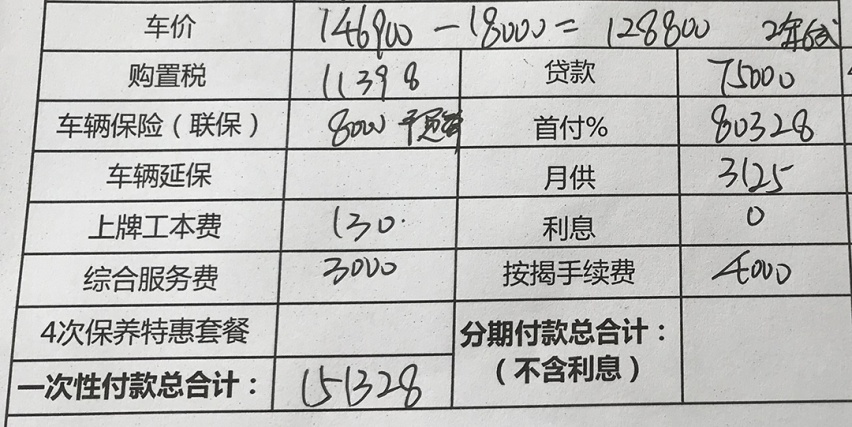 车价 146900 - 18000 = 128800 2年6成
购置税 11398 贷款 75000
车辆保险（联保） 8000 首付% 80328
车辆延保 月供 3125
上牌工本费 130 利息 0
综合服务费 3000 按揭手续费 4000
4次保养特惠套餐 分期付款总合计：
（不含利息）
一次性付款总合计： 151328